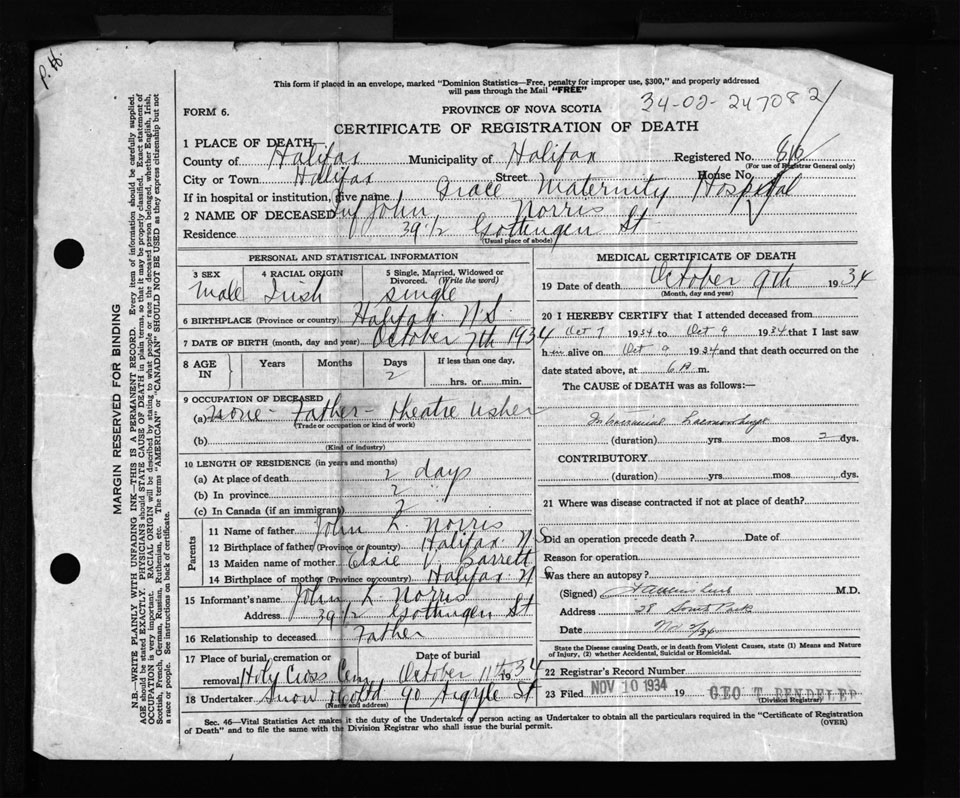 P. H.
This form if placed in an envelope, marked "Dominion Statistics—Free, penalty for improper use, $300," and properly addressed
will pass through the Mail "FREE"
FORM 6.
PROVINCE OF NOVA SCOTIA
34-02-247082
CERTIFICATE OF REGISTRATION OF DEATH
1 PLACE OF DEATH
County of Halifax Municipality of Halifax Registered No. 816
(For use of Registrar General only)
City or Town Halifax Street House No.
If in hospital or institution, give name Grace Maternity Hospital
2 NAME OF DECEASED John Norris
Residence 39 1/2 Gottingen St
(Usual place of abode)
PERSONAL AND STATISTICAL INFORMATION
3 SEX 4 RACIAL ORIGIN 5 Single, Married, Widowed or Divorced. (Write the word)
Male Irish Single
6 BIRTHPLACE (Province or country) Halifax N.S.
7 DATE OF BIRTH (month, day and year) October 7th 1934
8 AGE IN Years Months Days If less than one day,
2
hrs. or min.
9 OCCUPATION OF DECEASED
(a) None - Father - theatre usher
(Trade or occupation or kind of work)
(b)
(Kind of industry)
10 LENGTH OF RESIDENCE (in years and months)
(a) At place of death 2 days
(b) In province 2 "
(c) In Canada (if an immigrant) 2
Parents
11 Name of father John L. Norris
12 Birthplace of father (Province or country) Halifax N S
13 Maiden name of mother Elsie V Barrett
14 Birthplace of mother (Province or country) Halifax N S
15 Informant's name John L. Norris
Address 39 1/2 Gottingen St
16 Relationship to deceased Father
17 Place of burial, cremation or removal Date of burial
Holy Cross Cem. October 11th 1934
18 Undertaker Snow & Co Ltd 90 Argyle St
(Name and address)
MEDICAL CERTIFICATE OF DEATH
19 Date of death October 9th 1934
(Month, day and year)
20 I HEREBY CERTIFY that I attended deceased from
Oct 7 1934 to Oct 9 1934 that I last saw
him alive on Oct 9 1934 and that death occurred on the
date stated above, at 6 A m.
The CAUSE OF DEATH was as follows:—
Intracranial Haemorrhage
(duration) yrs. mos 2 dys.
CONTRIBUTORY
(duration) yrs. mos. dys.
21 Where was disease contracted if not at place of death?
Did an operation precede death? Date of
Reason for operation
Was there an autopsy?
(Signed) M.D.
Address 28 South Park
Date Nov 2/34
State the Disease causing Death, or in death from Violent Causes, state (1) Means and
Nature of Injury, (2) whether Accidental, Suicidal or Homicidal.
22 Registrar's Record Number
23 Filed NOV 10 1934 19 GEO T. RENDELED
(Division Registrar)
Sec. 46—Vital Statistics Act makes it the duty of the Undertaker or person acting as Undertaker to obtain all the particulars required in the "Certificate of Registration
of Death" and to file the same with the Division Registrar who shall issue the burial permit.
(OVER)
MARGIN RESERVED FOR BINDING
N.B.—WRITE PLAINLY WITH UNFADING INK—THIS IS A PERMANENT RECORD. Every item of information should be carefully supplied.
AGE should be stated EXACTLY. PHYSICIANS should STATE CAUSE OF DEATH in plain terms, so that it may be properly classified. Exact statement of
OCCUPATION is very important. RACIAL ORIGIN will be described by stating to what people or race the deceased person belonged, whether English, Irish,
Scottish, French, German, Russian, Ruthenian, etc. The terms "AMERICAN" or "CANADIAN" SHOULD NOT BE USED as they express citizenship but not
a race or people. See instructions on back of certificate.